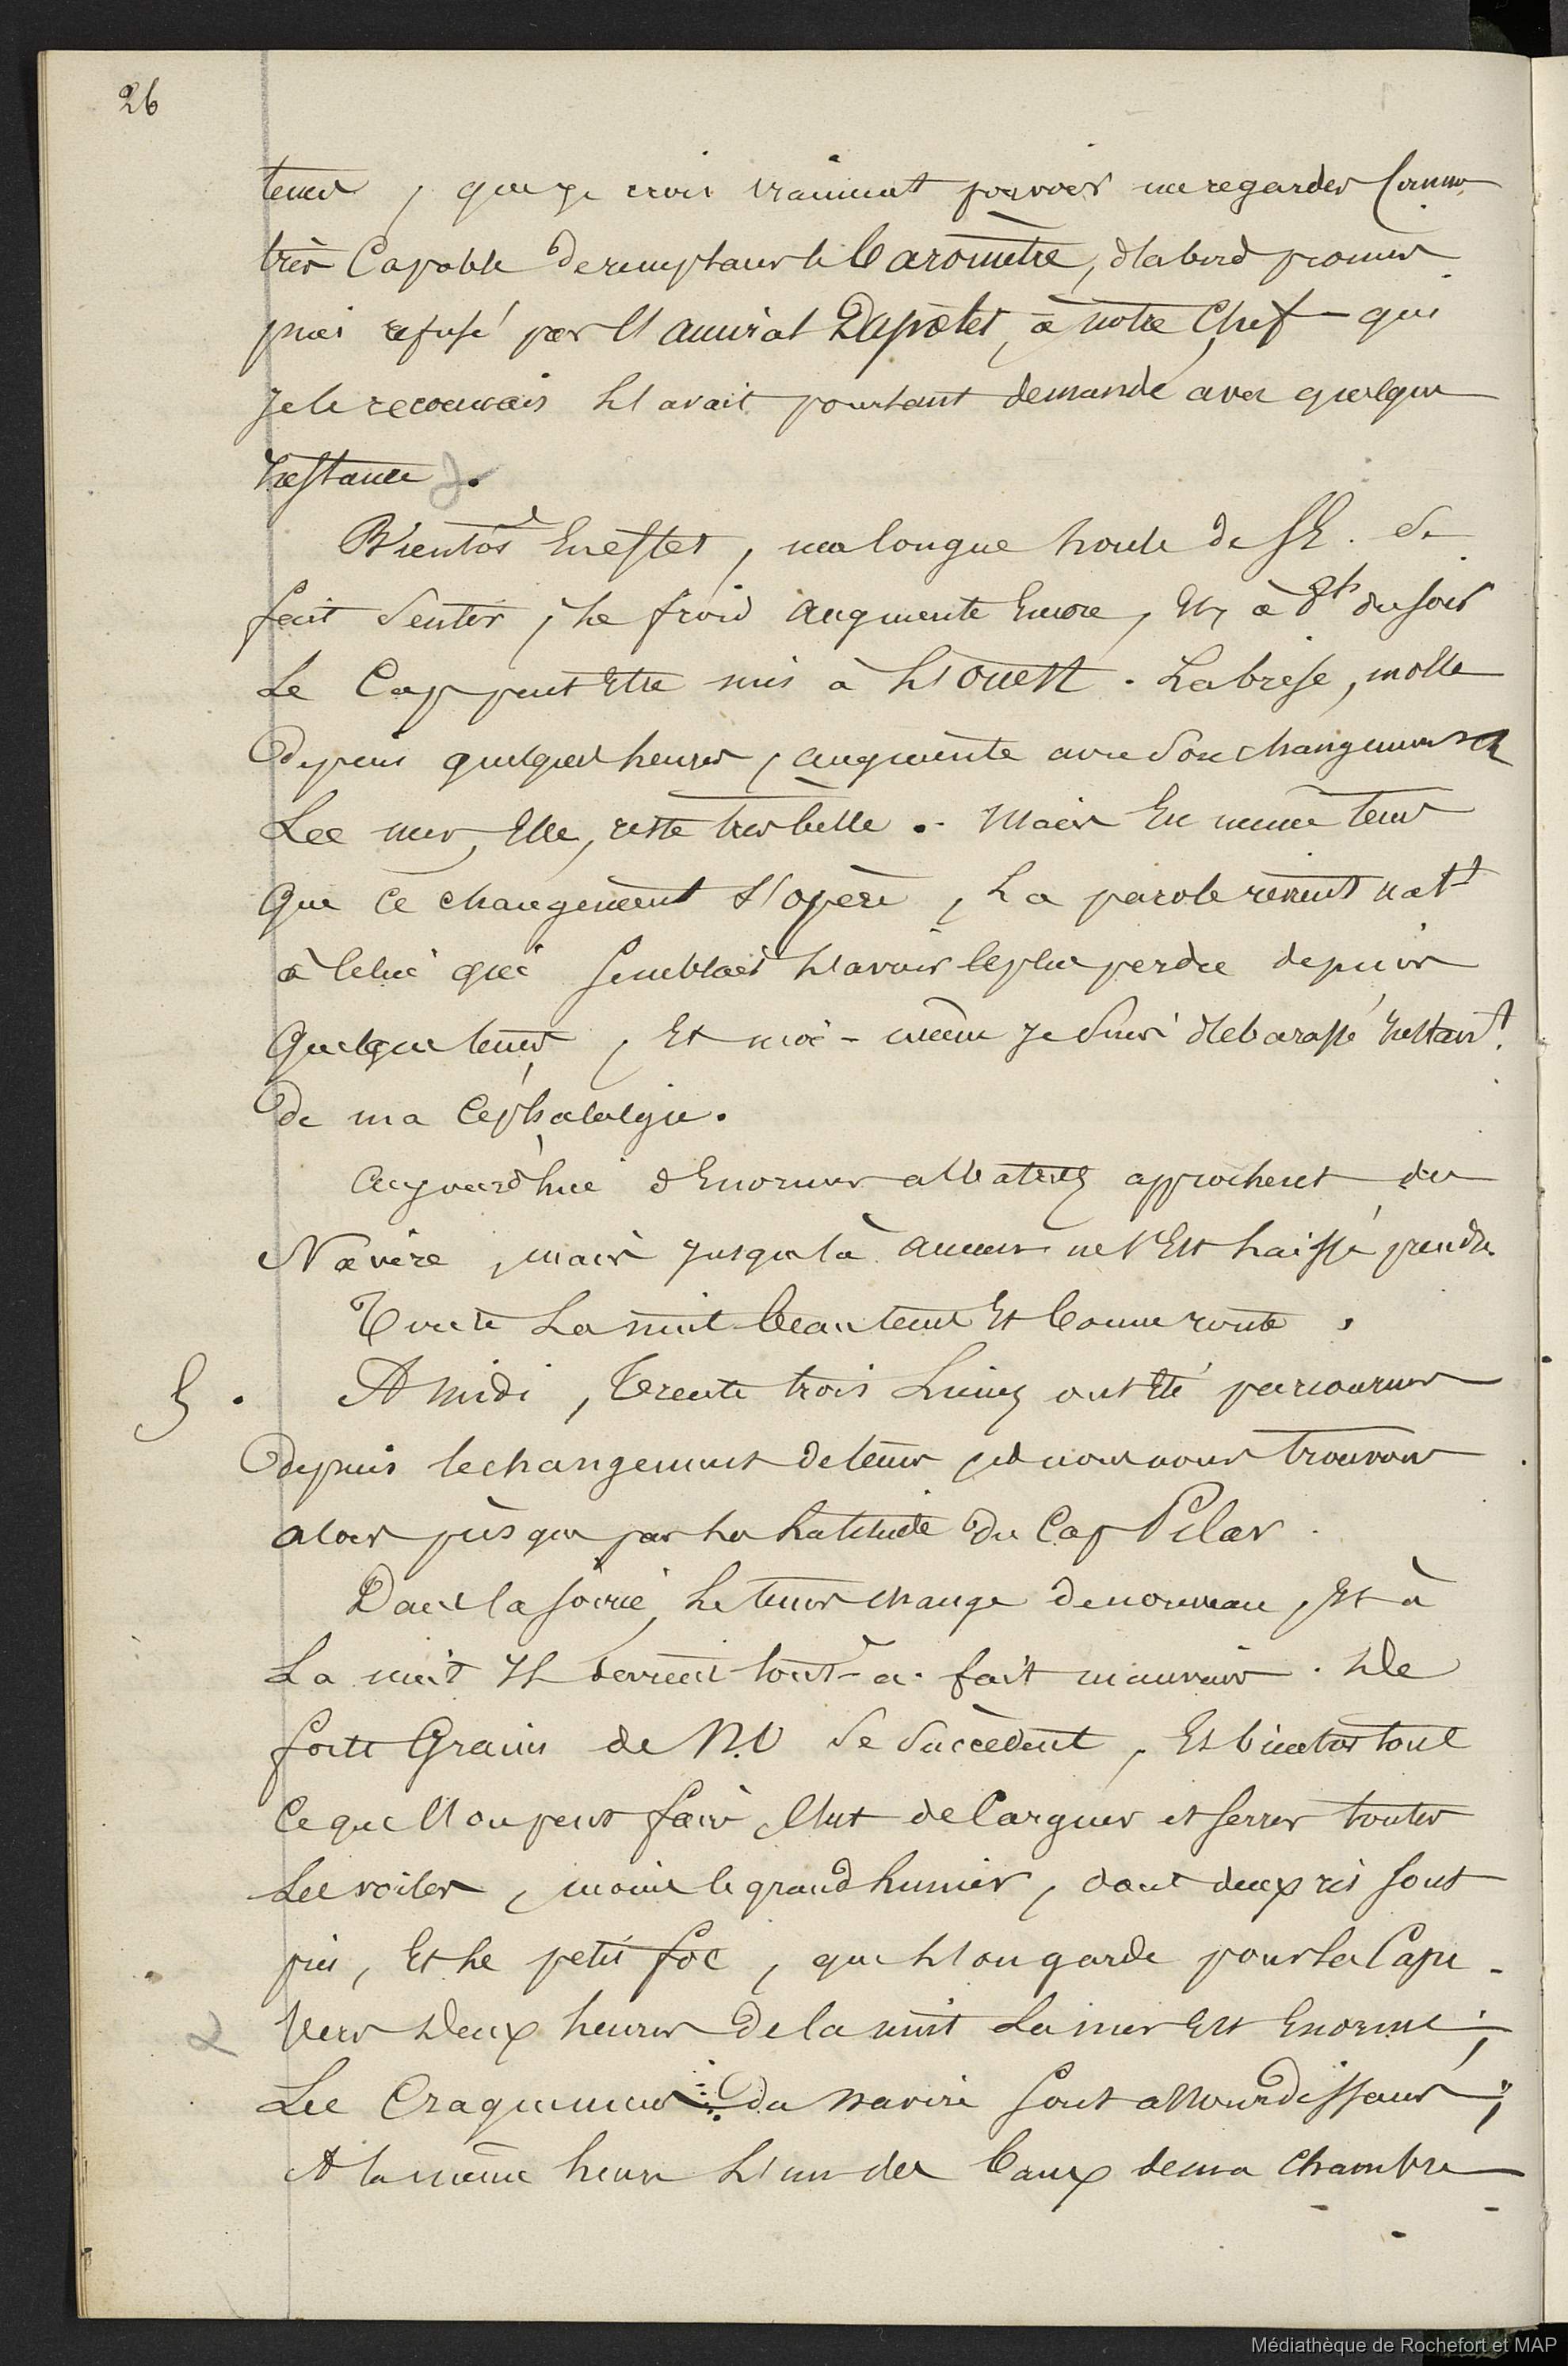 26
tems, que je crois vraiment pouvoir me regarder comme
très Capable de remplacer le Baromètre, d'abord promis
puis refusé par l'amiral Dapotet, à notre Chef qui
je le reconnais l'avait pourtant demandé avec quelque
Instance.
Bientôt En effet, une longue houle de SE. se
fait Sentir, Le froid augmente Encore, Et, à 8h du soir
Le Cap peut Etre mis à L'ouest. La brise, molle
depuis quelques heures, augmente avec son changement
La mer, Elle, reste très belle. Mais En même tems
Que Ce changement S'opère, La parole revient nat.t
à Celui qui Semblait L'avoir le plus perdue depuis
Quelque tems, Et moi-même Je Suis débarassé Instant.t
De ma Céphalalgie.
Aujourd'hui d'Enormes albatros approchent du
Navire, mais jusque là aucun ne s'Est Laissé prendre
Toute La nuit Beau tems Et bonne route.
5. A Midi, Trente trois Lieues ont été parcourues
depuis le changement de tems, et nous nous trouvons
alors presque par La Latitude du Cap Pilar.
Dans la soirée, Le tems change de nouveau, Et à
La nuit Il devient tout-à-fait mauvais. De
forts Grains de N.O Se Succèdent, Et bientôt tout
Ce que l'on peut faire C'est de Carguer et serrer toutes
Les voiles, moins le grand hunier, dont deux ris sont
pris, Et Le petit foc, que L'on garde pour la Cape.
Vers Deux heures De la nuit La mer Est Enorme;
Les Craquemens du navire sont assourdissans;
A la même heure L'un des Baux de ma Chambre
Médiathèque de Rochefort et MAP